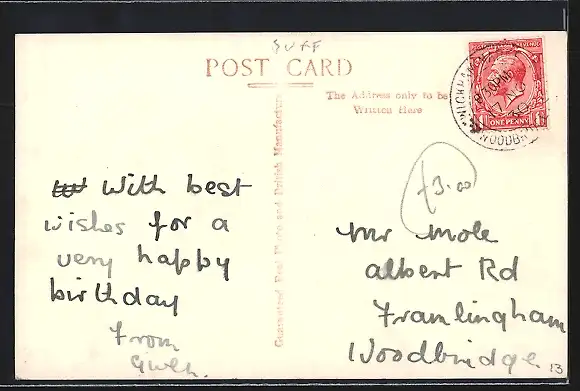 SUFF
POST CARD
The Address only to be
Written Here
Guaranteed Real Photo and British Manufacture
ONE PENNY
£3.00
With best
wishes for a
very happy
birthday
From
Gwen.
Mr Mole
Albert Rd
Framlingham
Woodbridge
13